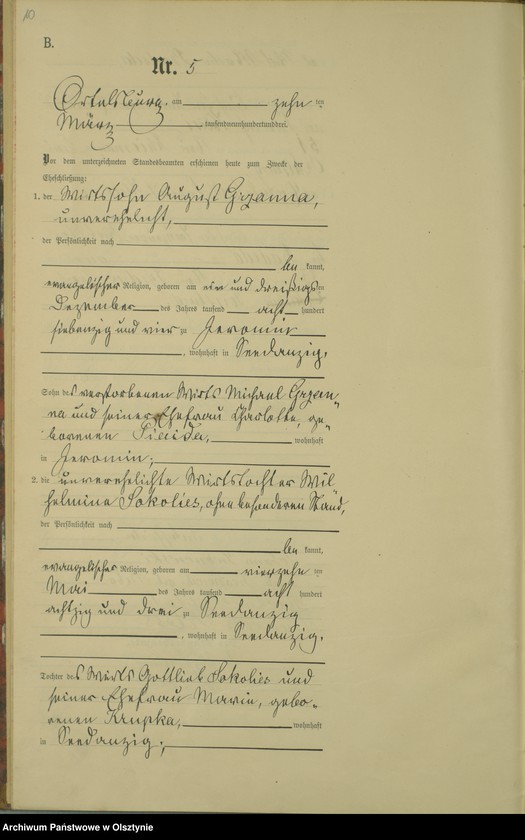 10
B.
Nr. 5
Ortelsburg, am zehnten
März tausendneunhundertunddrei.
Vor dem unterzeichneten Standesbeamten erschienen heute zum Zwecke der
Eheschließung:
1. der Wirtssohn August Grzanna,
unverehelicht,
der Persönlichkeit nach
be kannt,
evangelischer Religion, geboren am ein und dreißigsten
Dezember des Jahres tausend acht hundert
siebenzig und vier zu Jeromin
, wohnhaft in Seedanzig,
Sohn des verstorbenen Wirts Michael Grzan-
na und seiner Ehefrau Charlotte, ge-
borenen wohnhaft
in Jeromin;
2. die unverehelichte Wirtstochter Wil
helmine Sokolies, ohne besonderen Stand,
der Persönlichkeit nach
be kannt,
evangelischer Religion, geboren am vierzehnten
Mai des Jahres tausend acht hundert
achtzig und drei zu Seedanzig
, wohnhaft in Seedanzig,
Tochter des Wirts Gottlieb Sokolies und
seiner Ehefrau Marie, gebo-
renen Krupka, wohnhaft
in Seedanzig;
Archiwum Państwowe w Olsztynie